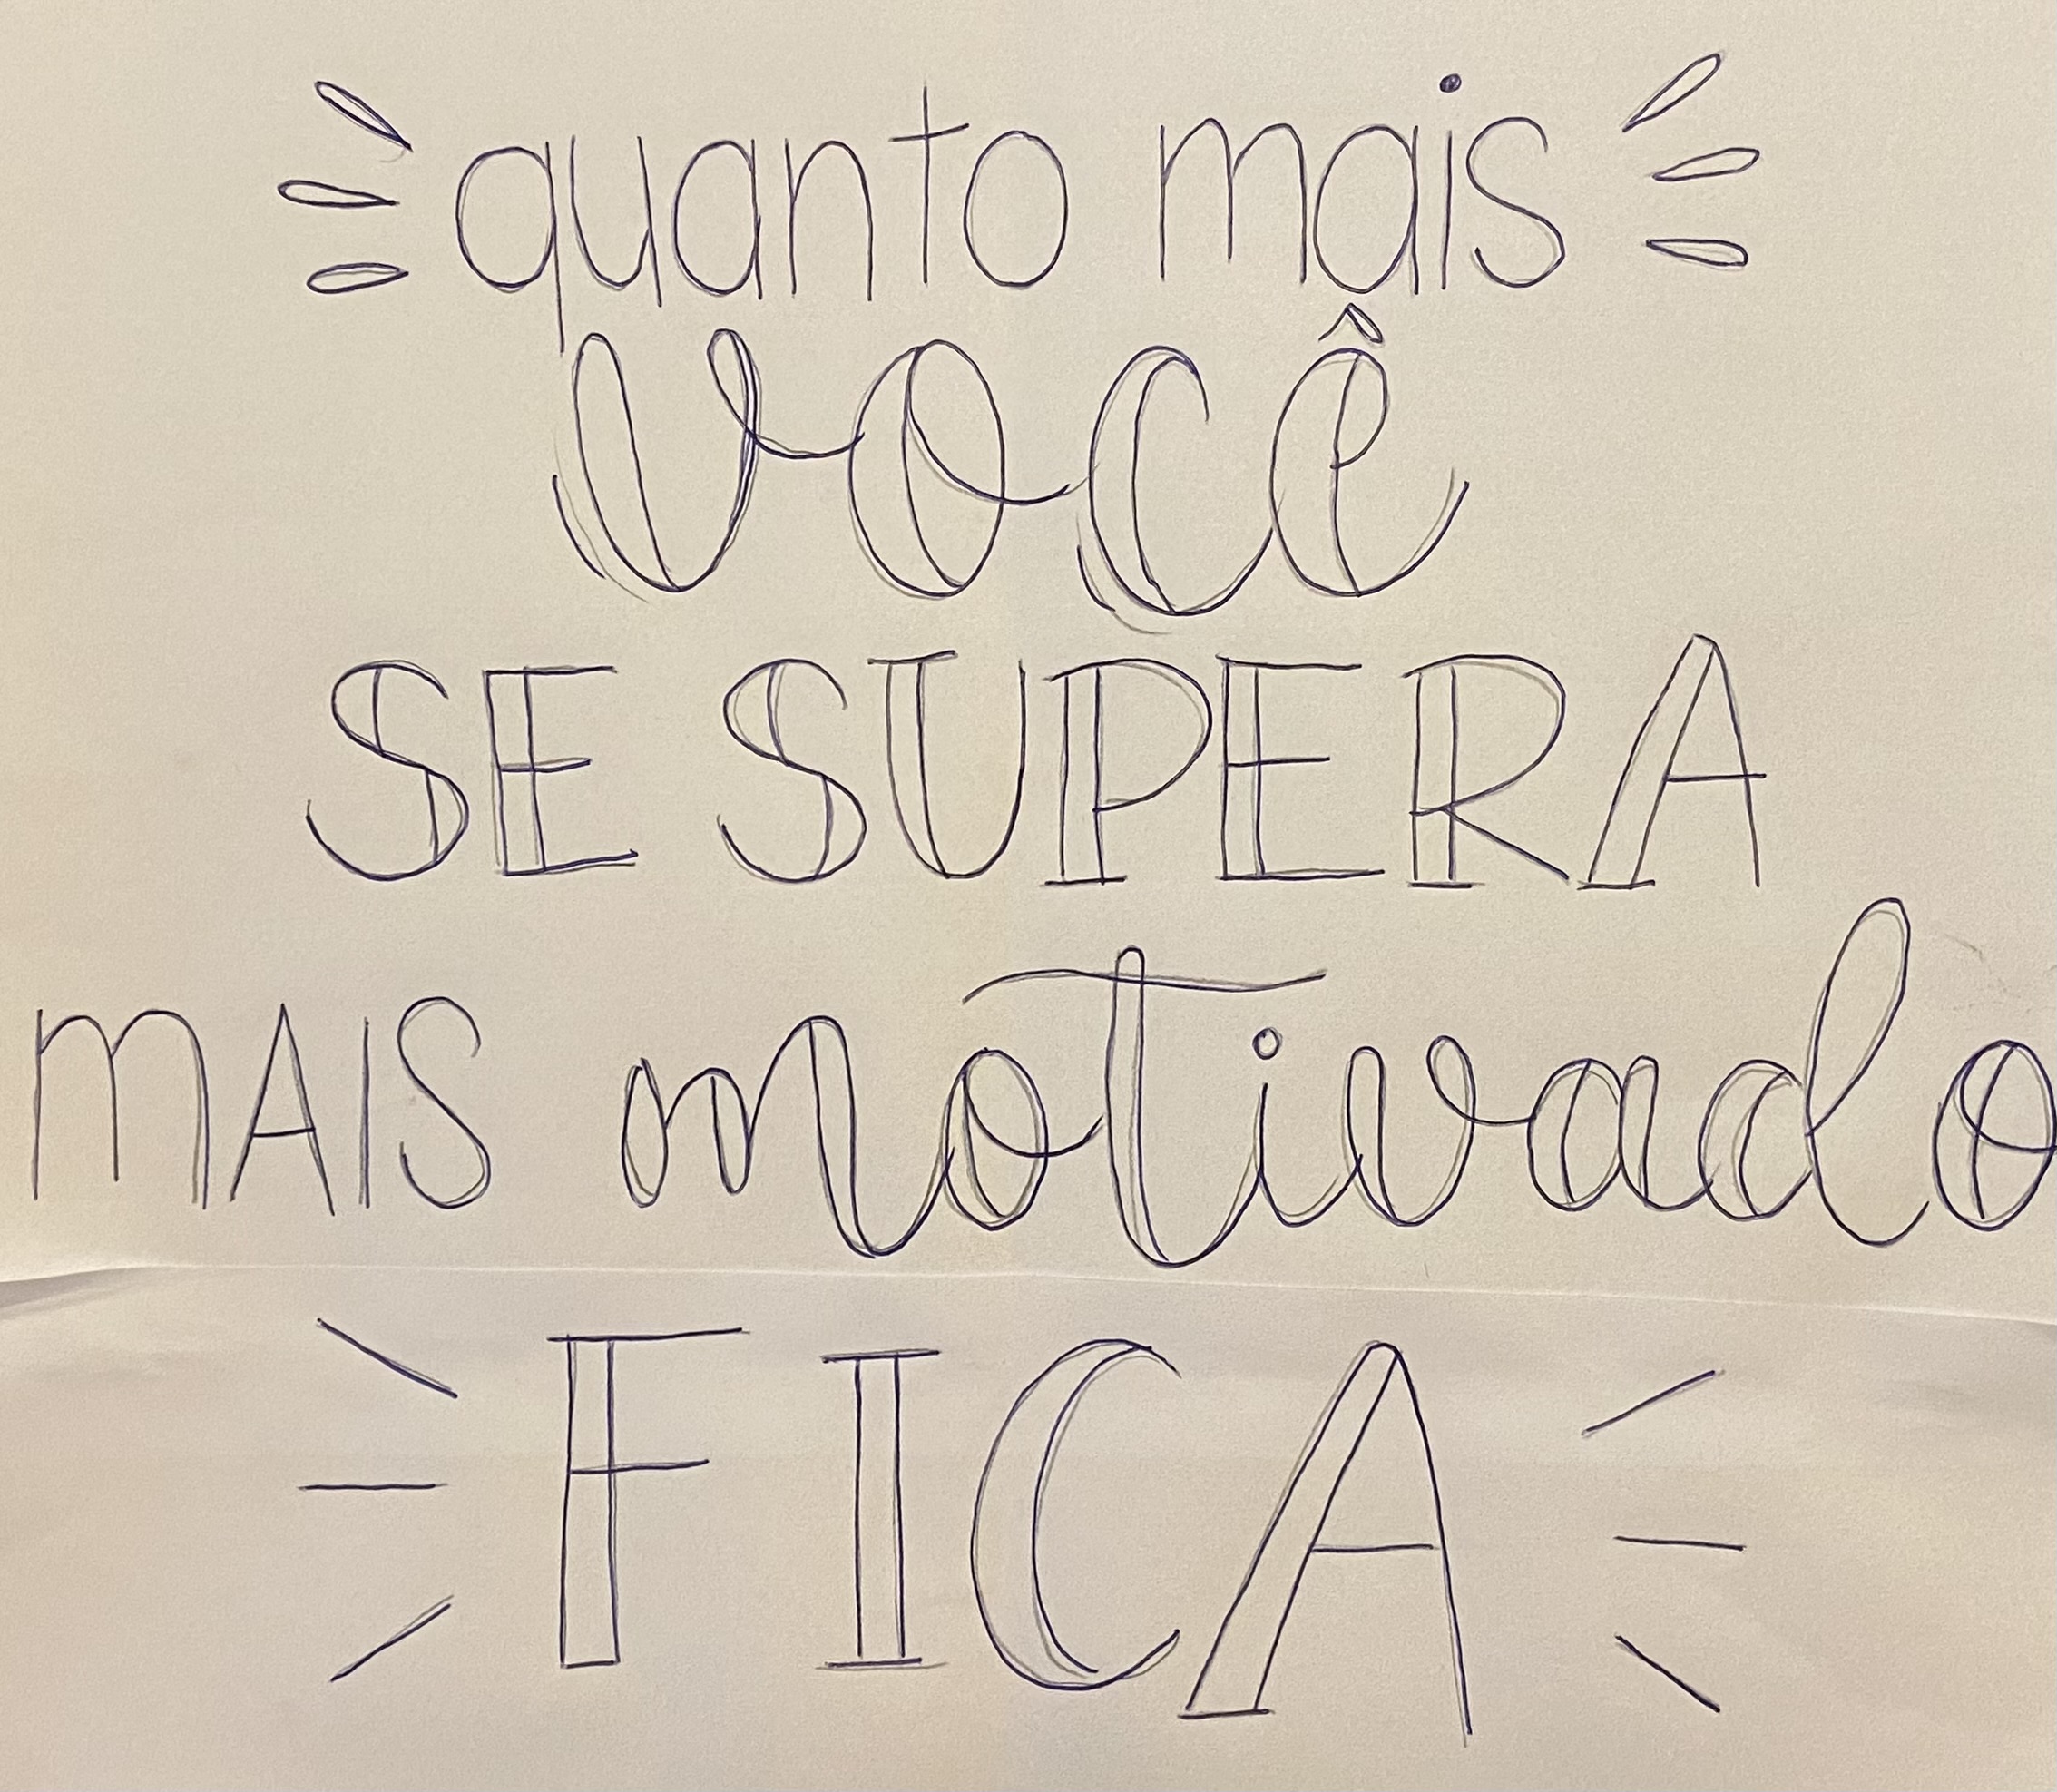 quanto mais
você
SE SUPERA
MAIS motivado
FICA